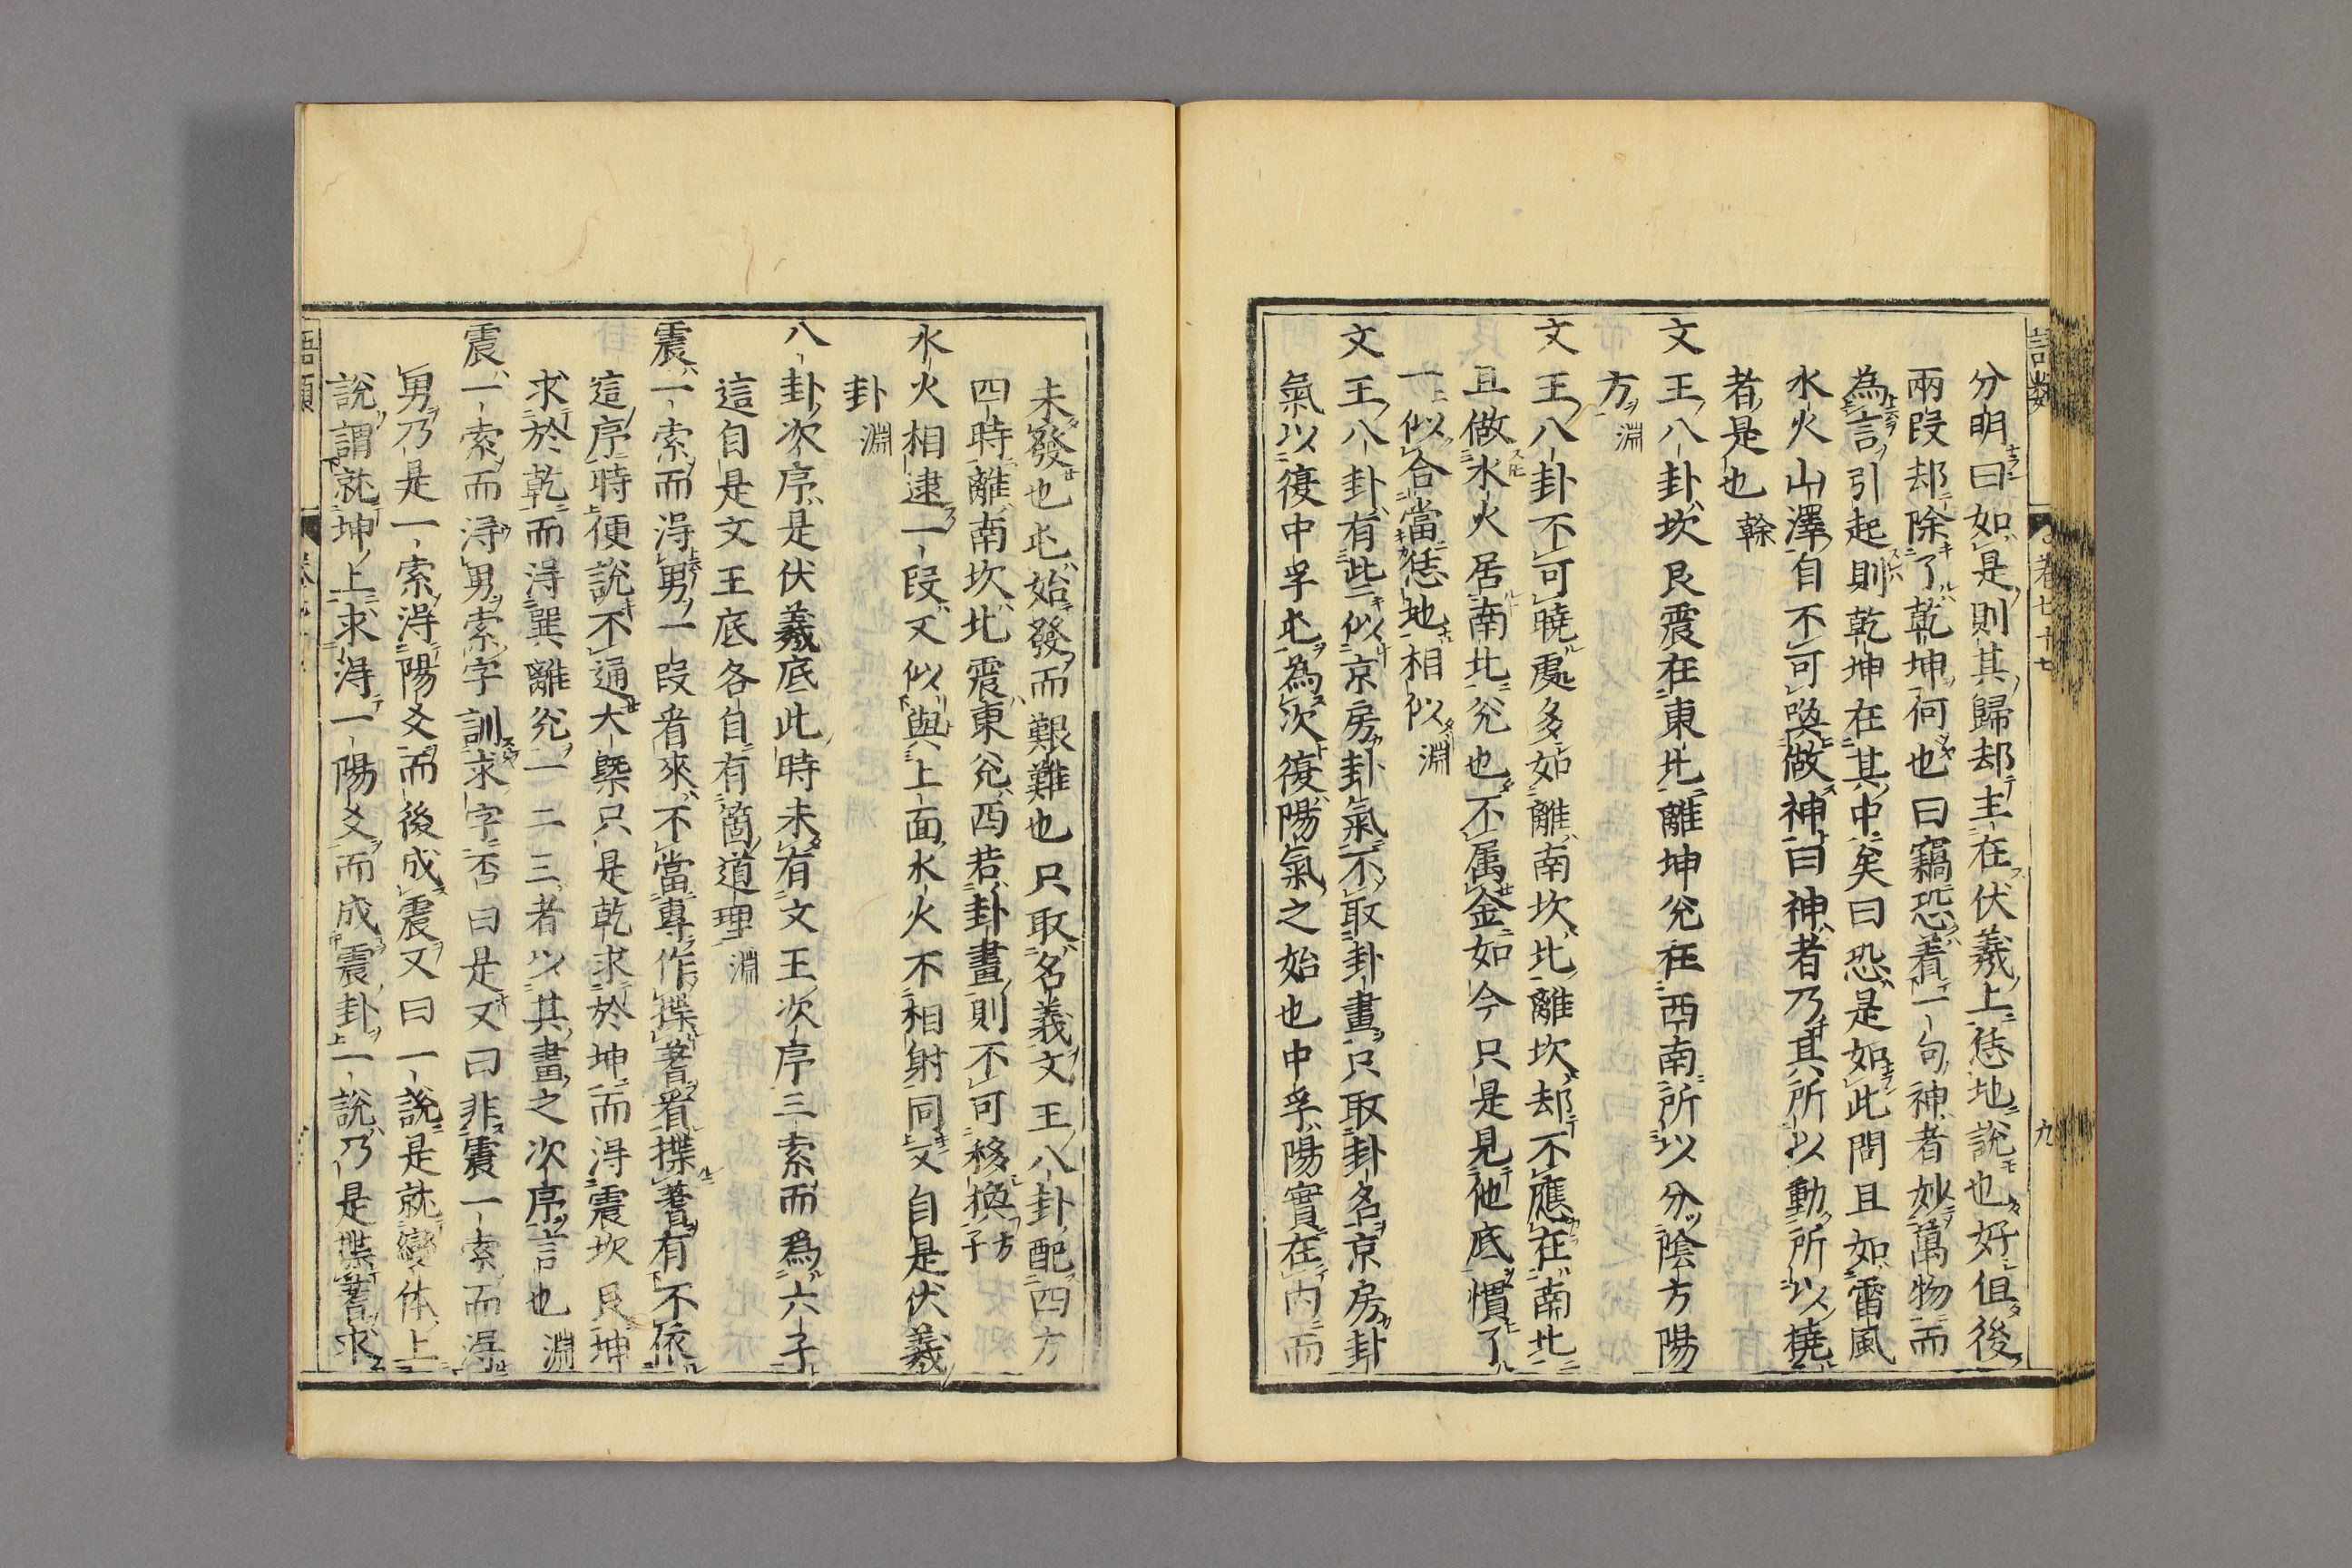 語類
卷七十七
九
分明曰如是則其歸却主在伏羲上恁地說也好但後
兩段却除了乾坤何也曰竊恐着一句神者妙萬物而
為言引起則乾坤在其中矣曰恐是如此問且如雷風
水火山澤自不可喚做神曰神者乃其所以動所以撓
者是也 榦
文王八卦坎艮震在東北離坤兌在西南所以分陰方陽
方 淵
文王八卦不可曉處多如離南坎北離坎却不應在南北
且做水火居南北兌也不属金如今只是見他底慣了
一似合當恁地相似 淵
文王八卦有些似京房卦氣不取卦畫只取卦名京房卦
氣以復中孚屯為次復陽氣之始也中孚陽實在內而
未發也屯始發而艱難也只取名義文王八卦配四方
四時離南坎北震東兌西若卦畫則不可移換 方子
水火相逮一段又似與上面水火不相射同又自是伏羲
卦 淵
八卦次序是伏羲底此時未有文王次序三索而爲六子
這自是文王底各自有箇道理 淵
震一索而淂男一段看來不當專作揲蓍看揲蓍有不依
這序時便說不通大槩只是乾求於坤而淂震坎艮坤
求於乾而淂巽離兌一二三者以其畫之次序言也 淵
震一索而淂男索字訓求字否曰是又曰非震一索而淂
男乃是一索淂陽爻而後成震又曰一說是就變体上
說謂就坤上求淂一陽爻而成震卦一說乃是揲蓍求
語類